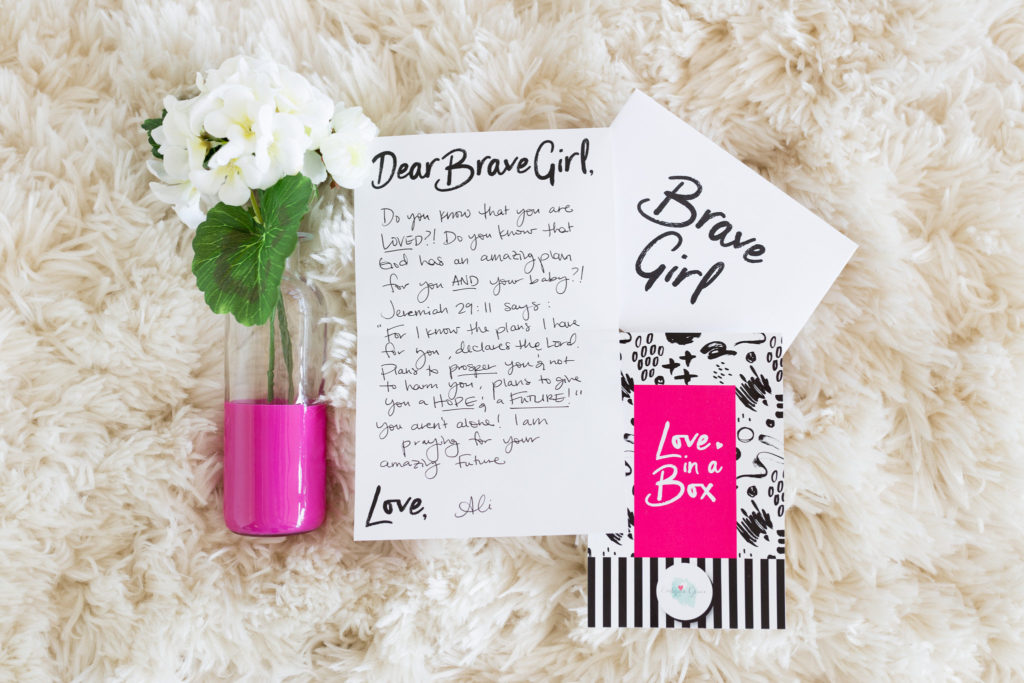 Dear Brave Girl,
Do you know that you are
LOVED?! Do you know that
God has an amazing plan
for you AND your baby?!
Jeremiah 29:11 says:
"For I know the plans I have
for you, declares the Lord.
Plans to prosper you & not
to harm you, plans to give
you a HOPE & a FUTURE!"
You aren't alone! I am
praying for your
amazing future
Love,
Ali
Brave
Girl
Love
in a
Box